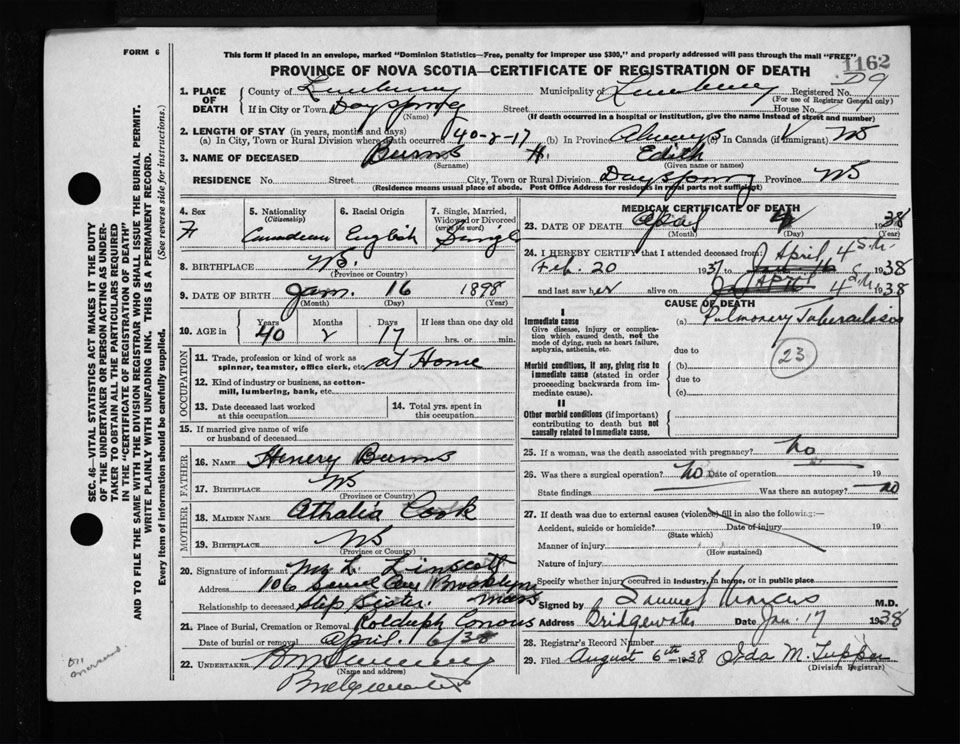 FORM 6
This form if placed in an envelope, marked "Dominion Statistics—Free, penalty for improper use $300," and properly addressed will pass through the mail "FREE"
1162
PROVINCE OF NOVA SCOTIA—CERTIFICATE OF REGISTRATION OF DEATH
1. PLACE OF DEATH County of Lunenburg Municipality of Lunenburg Registered No. 29
(For use of Registrar General only)
If in City or Town Dayspring Street House No.
(Name) (If death occurred in a hospital or institution, give the name instead of street and number)
2. LENGTH OF STAY (in years, months and days)
(a) In City, Town or Rural Division where death occurred 40-2-17 (b) In Province Always (c) In Canada (if immigrant) NS
3. NAME OF DECEASED Burns H. Edith
(Surname) (Given name or names)
RESIDENCE No. Street City, Town or Rural Division Dayspring Province NS
(Residence means usual place of abode. Post Office Address for residents in rural parts not sufficient)
4. Sex F
5. Nationality (Citizenship) Canadian
6. Racial Origin English
7. Single, Married, Widowed or Divorced (write the word) Single
8. BIRTHPLACE NS.
(Province or Country)
9. DATE OF BIRTH Jan. 16 1898
(Month) (Day) (Year)
10. AGE in Years 40 Months 2 Days 17 If less than one day old hrs. or min.
OCCUPATION
11. Trade, profession or kind of work as spinner, teamster, office clerk, etc. at Home
12. Kind of industry or business, as cotton-mill, lumbering, bank, etc.
13. Date deceased last worked at this occupation
14. Total yrs. spent in this occupation
15. If married give name of wife or husband of deceased
FATHER
16. NAME Henery Burns
17. BIRTHPLACE NS
(Province or Country)
MOTHER
18. MAIDEN NAME Athalia Cook
19. BIRTHPLACE NS
(Province or Country)
20. Signature of informant L. Linscott
Address 106 Brooklyn Mass
Relationship to deceased Step Sister.
21. Place of Burial, Cremation or Removal
Date of burial or removal April. 6/38
22. UNDERTAKER
(Name and address)
Bridgewater
MEDICAL CERTIFICATE OF DEATH
23. DATE OF DEATH April 4 1938
(Month) (Day) (Year)
24. I HEREBY CERTIFY that I attended deceased from: April 4th
Feb. 20 1937 to 1938
and last saw her alive on 4th 1938
CAUSE OF DEATH
I
Immediate cause
Give disease, injury or complication which caused death, not the mode of dying, such as heart failure, asphyxia, asthenia, etc.
(a) Pulmonery Tuberculosis
due to
23
Morbid conditions, if any, giving rise to immediate cause (stated in order proceeding backwards from immediate cause).
(b)
due to
(c)
II
Other morbid conditions (if important) contributing to death but not causally related to immediate cause.
25. If a woman, was the death associated with pregnancy? no
26. Was there a surgical operation? no Date of operation 19
State findings Was there an autopsy? no
27. If death was due to external causes (violence) fill in also the following:—
Accident, suicide or homicide? Date of injury 19
(State which)
Manner of injury
(How sustained)
Nature of injury
Specify whether injury occurred in industry, in home, or in public place
Signed by Samuel Marcus M.D.
Address Bridgewater Date Jan. 17 1938
28. Registrar's Record Number
29. Filed August 6th 1938 Ida M. Tupper
(Division Registrar)
SEC. 46—VITAL STATISTICS ACT MAKES IT THE DUTY
OF THE UNDERTAKER OR PERSON ACTING AS UNDER-
TAKER TO OBTAIN ALL THE PARTICULARS REQUIRED
IN THE "CERTIFICATE OF REGISTRATION OF DEATH"
AND TO FILE THE SAME WITH THE DIVISION REGISTRAR WHO SHALL ISSUE THE BURIAL PERMIT.
WRITE PLAINLY WITH UNFADING INK. THIS IS A PERMANENT RECORD.
Every item of information should be carefully supplied. (See reverse side for instructions.)